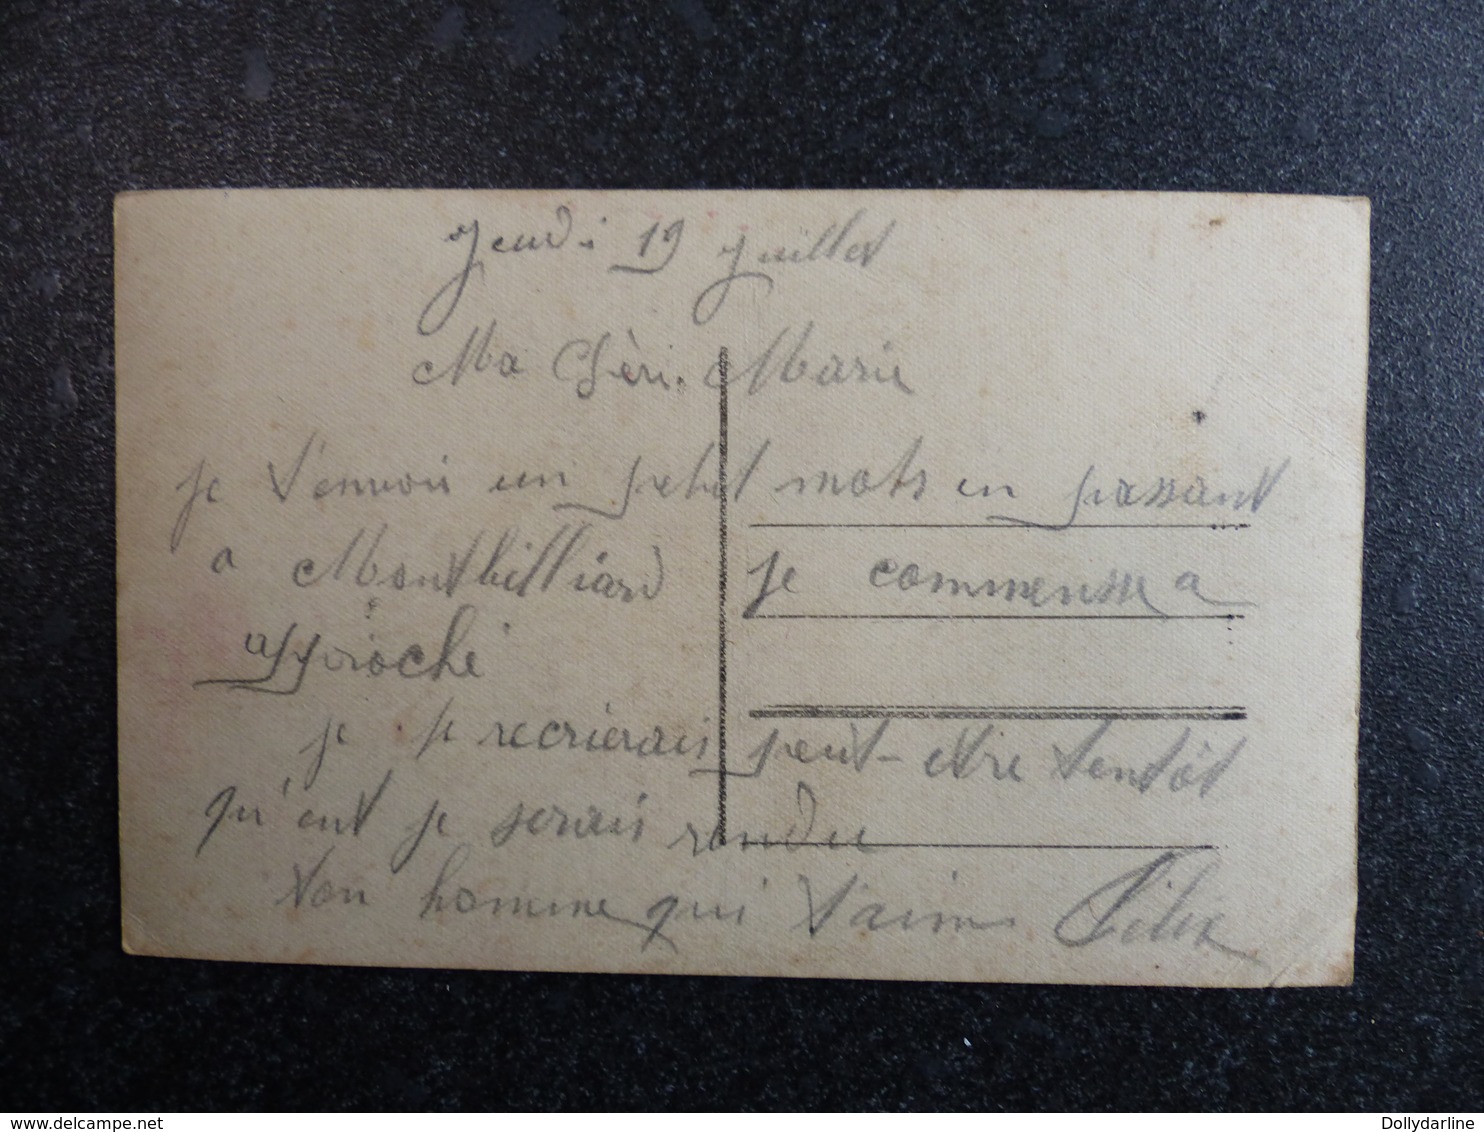 Jeudi 19 Juillet
Ma Chèri. Marie
je t'envois un petit mots en passant
a Montbilliard je commensse a
approché
je recrierais peut-etre tentôt
qu'ent je serais rendu
ton homme qui t'aime Félix
delcampe.net
Dollydarline